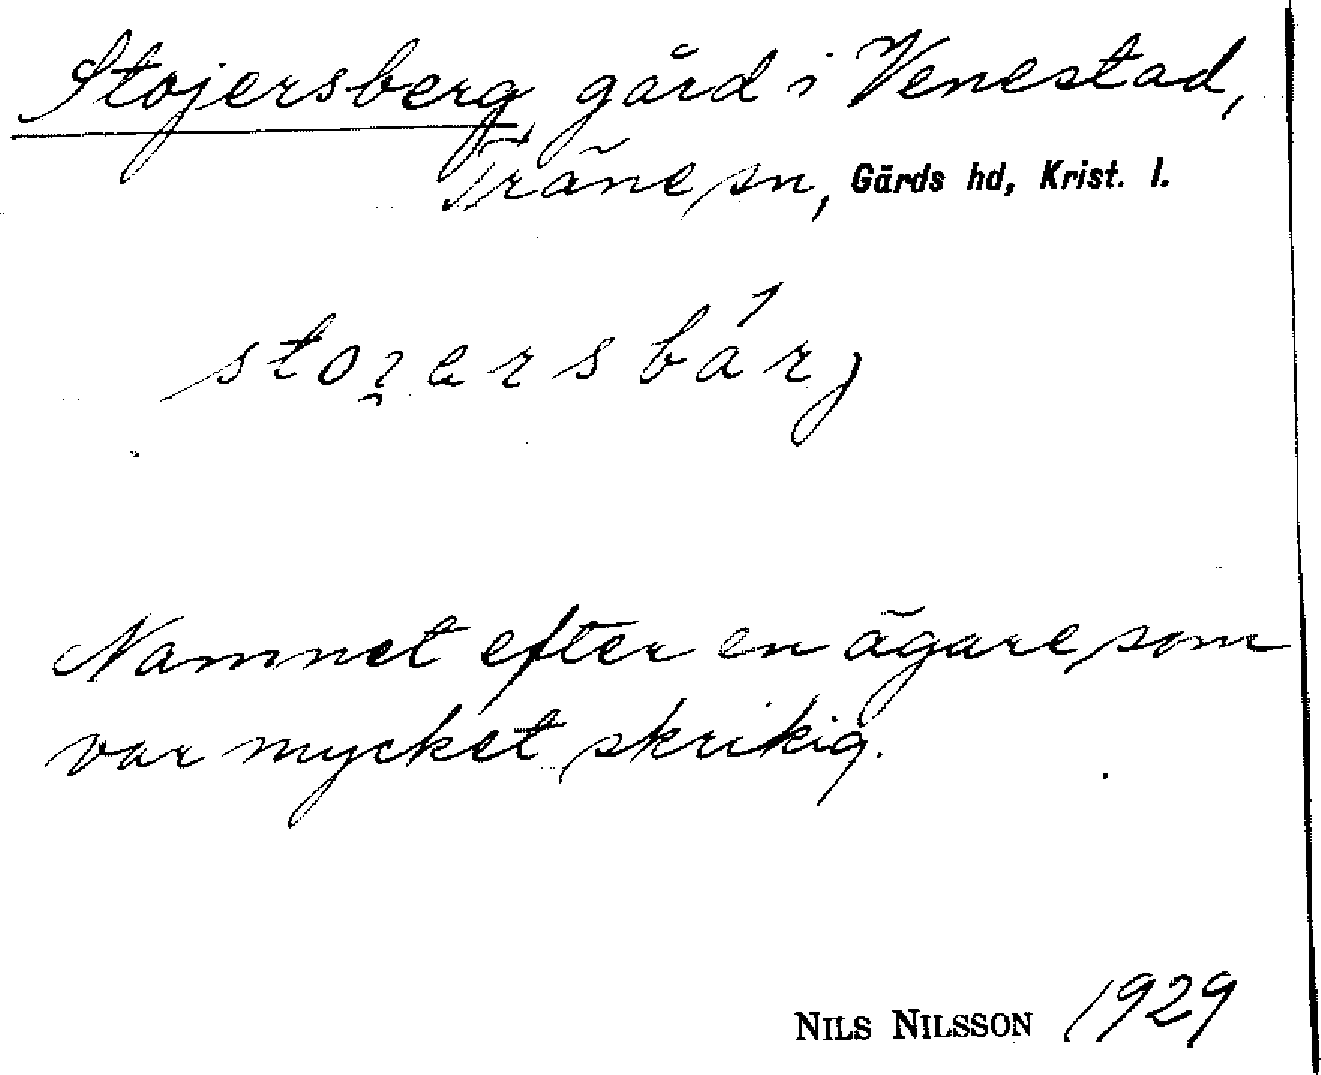 Stojersberg gård i Venestad,
Träne sn, Gärds hd, Krist. l.
Namnet efter en ägare som
var mycket skrikig.
NILS NILSSON 1929